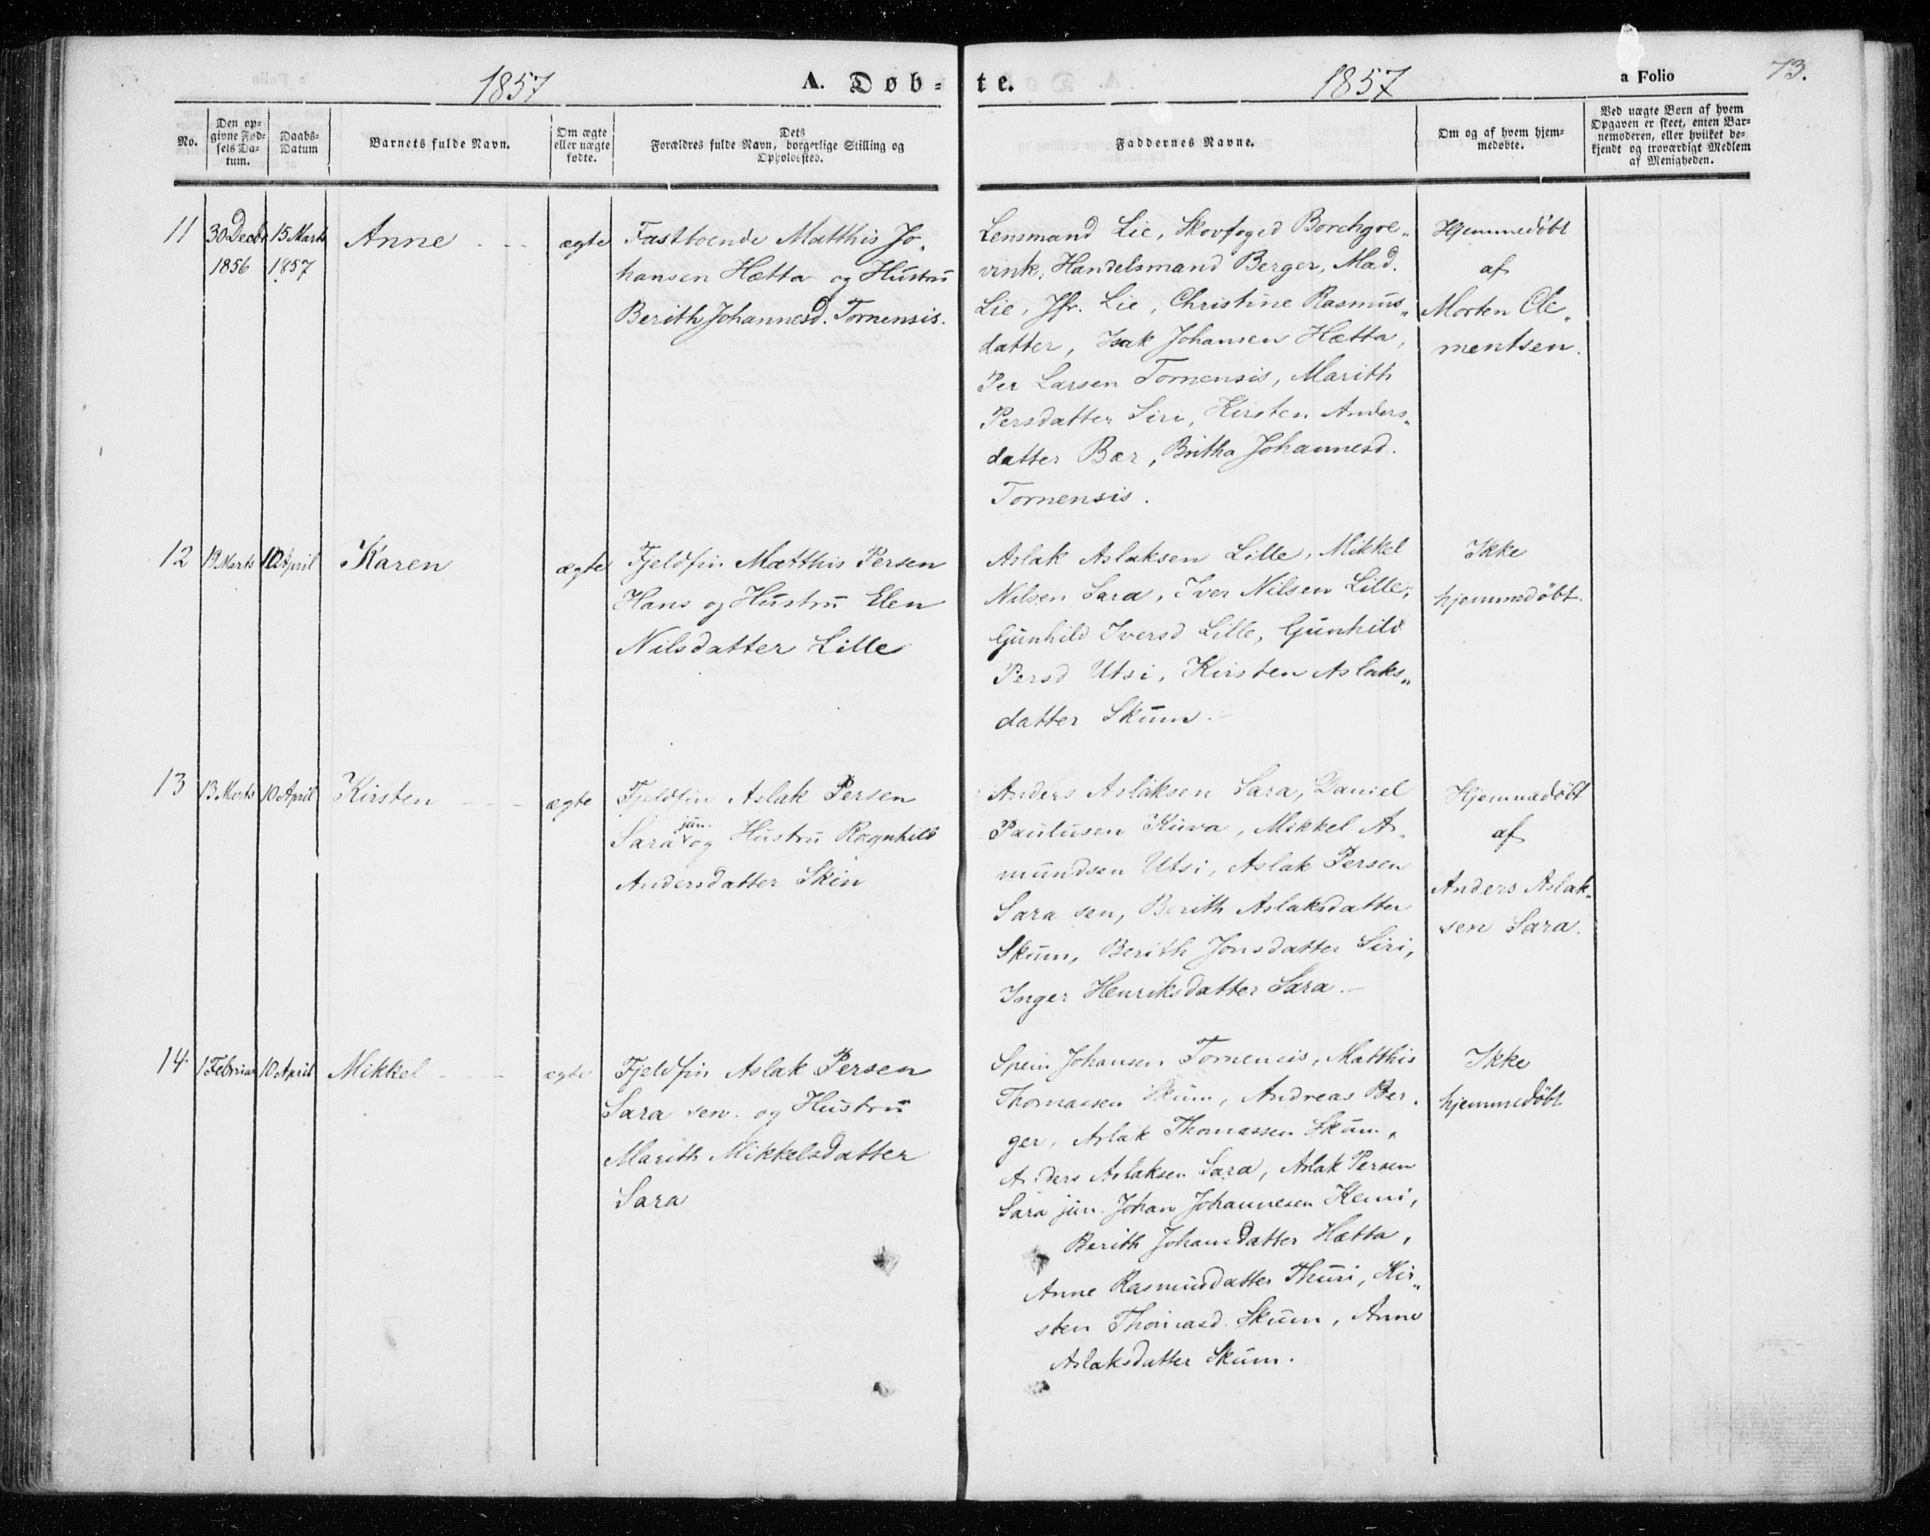 1857 A. Døb-te. 1857 a Folio 73.
No.
Den op-
givne Fød-
sels Da-
tum.
Daabs-
Datum
Barnets fulde Navn.
Om ægte
eller uægte
fødte.
Dets
Forældres fulde Navn, borgerlige Stilling og
Opholdssted.
Faddernes Navne.
Om og af hvem hjem-
medøbte.
Ved uægte Børn af hvem
Opgaven er skeet, enten Bar-
nemoderen, eller hvilket be-
kjendt og troværdigt Medlem
af Menigheden.
11
30 Decbr
1856
15 Marts
1857
Anne
ægte
Fastboende Matthis Jo-
hansen Hætta og Hustru
Berith Johannesd. Tornensis.
Lensmand Lie, Skovfoged Borchgre-
vink, Handelsmand Berger, Mad.
Lie, Jfr. Lie, Christine Rasmus-
datter, Isak Johansen Hætta,
Per Larsen Tornensis, Marith
Persdatter Siri, Kirsten Anders-
datter Bær, Britha Johannesd.
Tornensis.
Hjemmedøbt
af
Morten Cle-
mentsen.
12
19 Marts
10 April
Karen
ægte
Fjeldfin Matthis Persen
Hans og Hustru Elen
Nilsdatter Lille
Aslak Aslaksen Lille, Mikkel
Nilsen Sara, Iver Nilsen Lille,
Gunhild Iversd Lille, Gunhild
Persd Utsi, Kirsten Aslaks-
datter Skum.
Ikke
hjemmedøbt.
13
13 Marts
10 April
Kirsten
ægte
Fjeldfin Aslak Persen
Sara jun. og Hustru Ragnhild
Andersdatter Skin
Anders Aslaksen Sara, Daniel
Paulusen Kuva, Mikkel A-
mundsen Utsi, Aslak Persen
Sara sen, Berith Aslaksdatter
Skum, Berith Jonsdatter Siri,
Inger Henriksdatter Sara.
Hjemmedøbt
af
Anders Aslak-
sen Sara.
14
1 Februar
10 April
Mikkel
ægte
Fjeldfin Aslak Persen
Sara sen. og Hustru
Marith Mikkelsdatter
Sara
Spein Johansen Tornensis, Matthis
Thomassen Skum, Andreas Ber-
ger, Aslak Thomassen Skum,
Anders Aslaksen Sara, Aslak Persen
Sara jun. Johan Johannesen Kemi,
Berith Johansdatter Hætta,
Anne Rasmusdatter Thuri, Kir-
sten Thomasd. Skum, Anne
Aslaksdatter Skum.
Ikke
hjemmedøbt